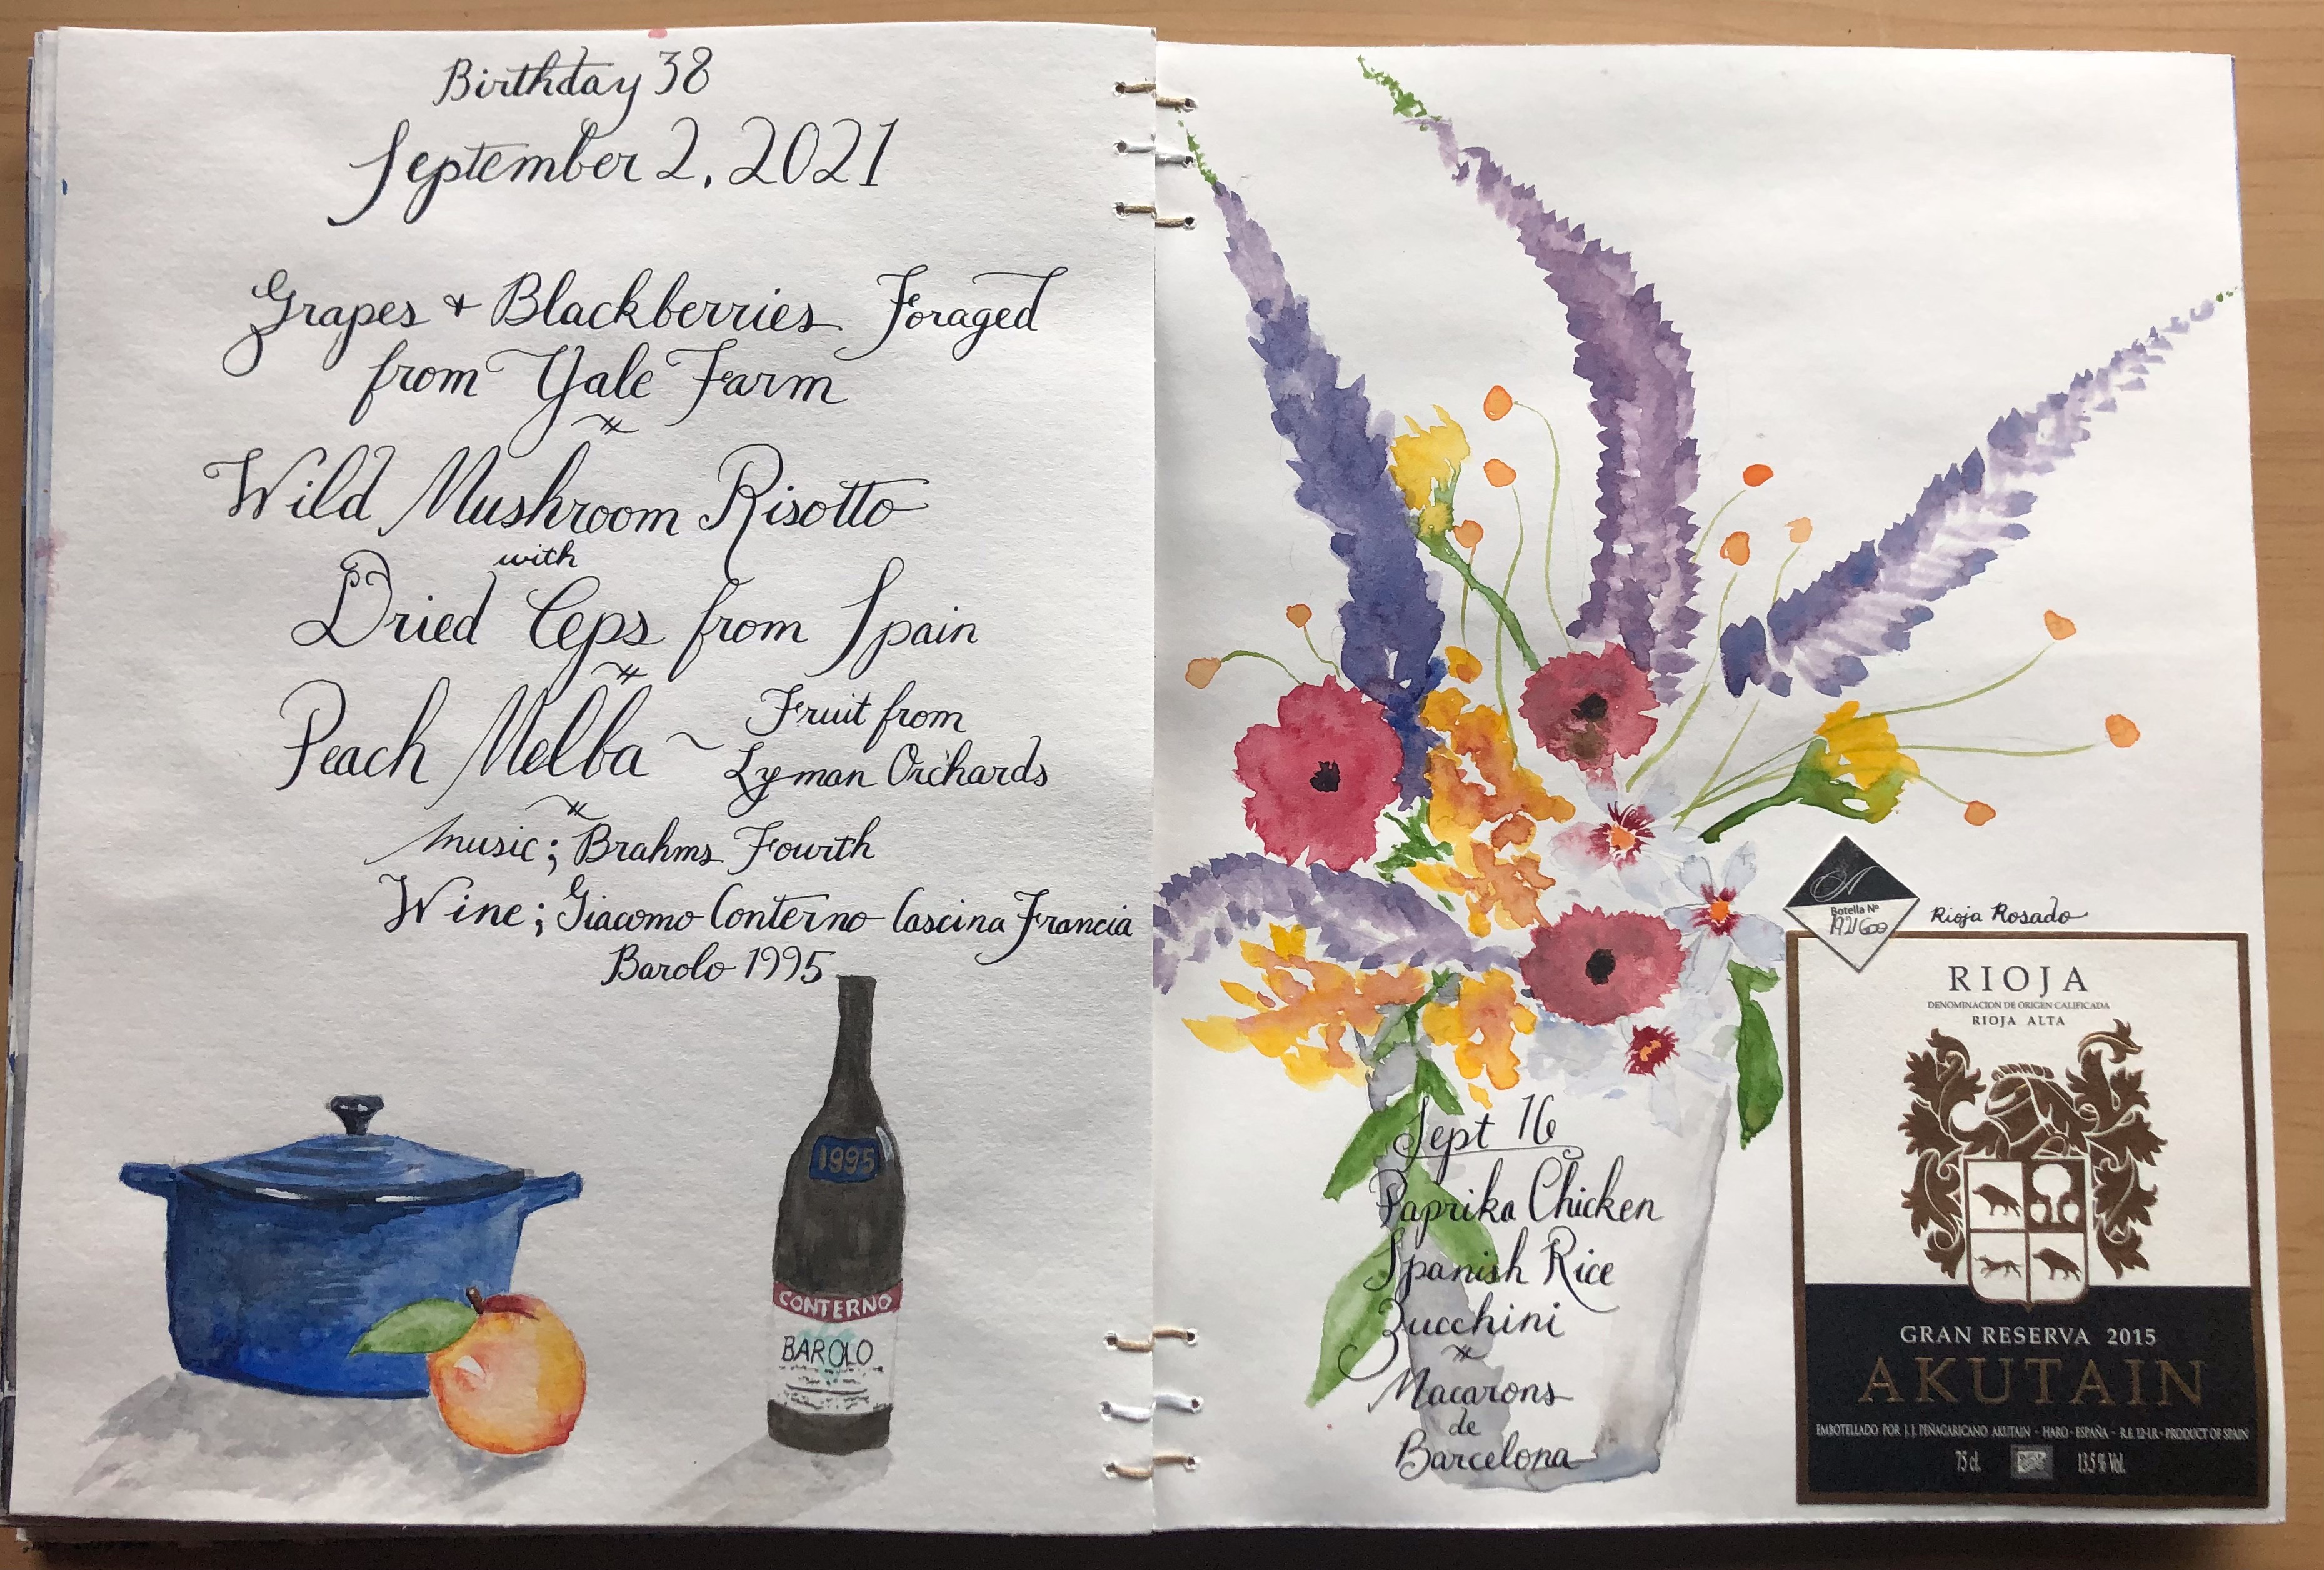 Birthday 38
September 2, 2021
Grapes + Blackberries Foraged
from Yale Farm
Wild Mushroom Risotto
with
Dried Ceps from Spain
Peach Melba ~ Fruit from
Lyman Orchards
music; Brahms Fourth
Wine; Giacomo Conterno Cascina Francia
Barolo 1995
1995
CONTERNO
BAROLO
Sept 16
Paprika Chicken
Spanish Rice
Zucchini
Macarons
de
Barcelona
A
Botella Nº
Rioja Rosado
RIOJA
DENOMINACION DE ORIGEN CALIFICADA
RIOJA ALTA
GRAN RESERVA 2015
AKUTAIN
EMBOTELLADO POR J.J. PEÑAGARICANO AKUTAIN - HARO - ESPAÑA - R.E. 12-LR - PRODUCT OF SPAIN
75 cl. 13.5% Vol.